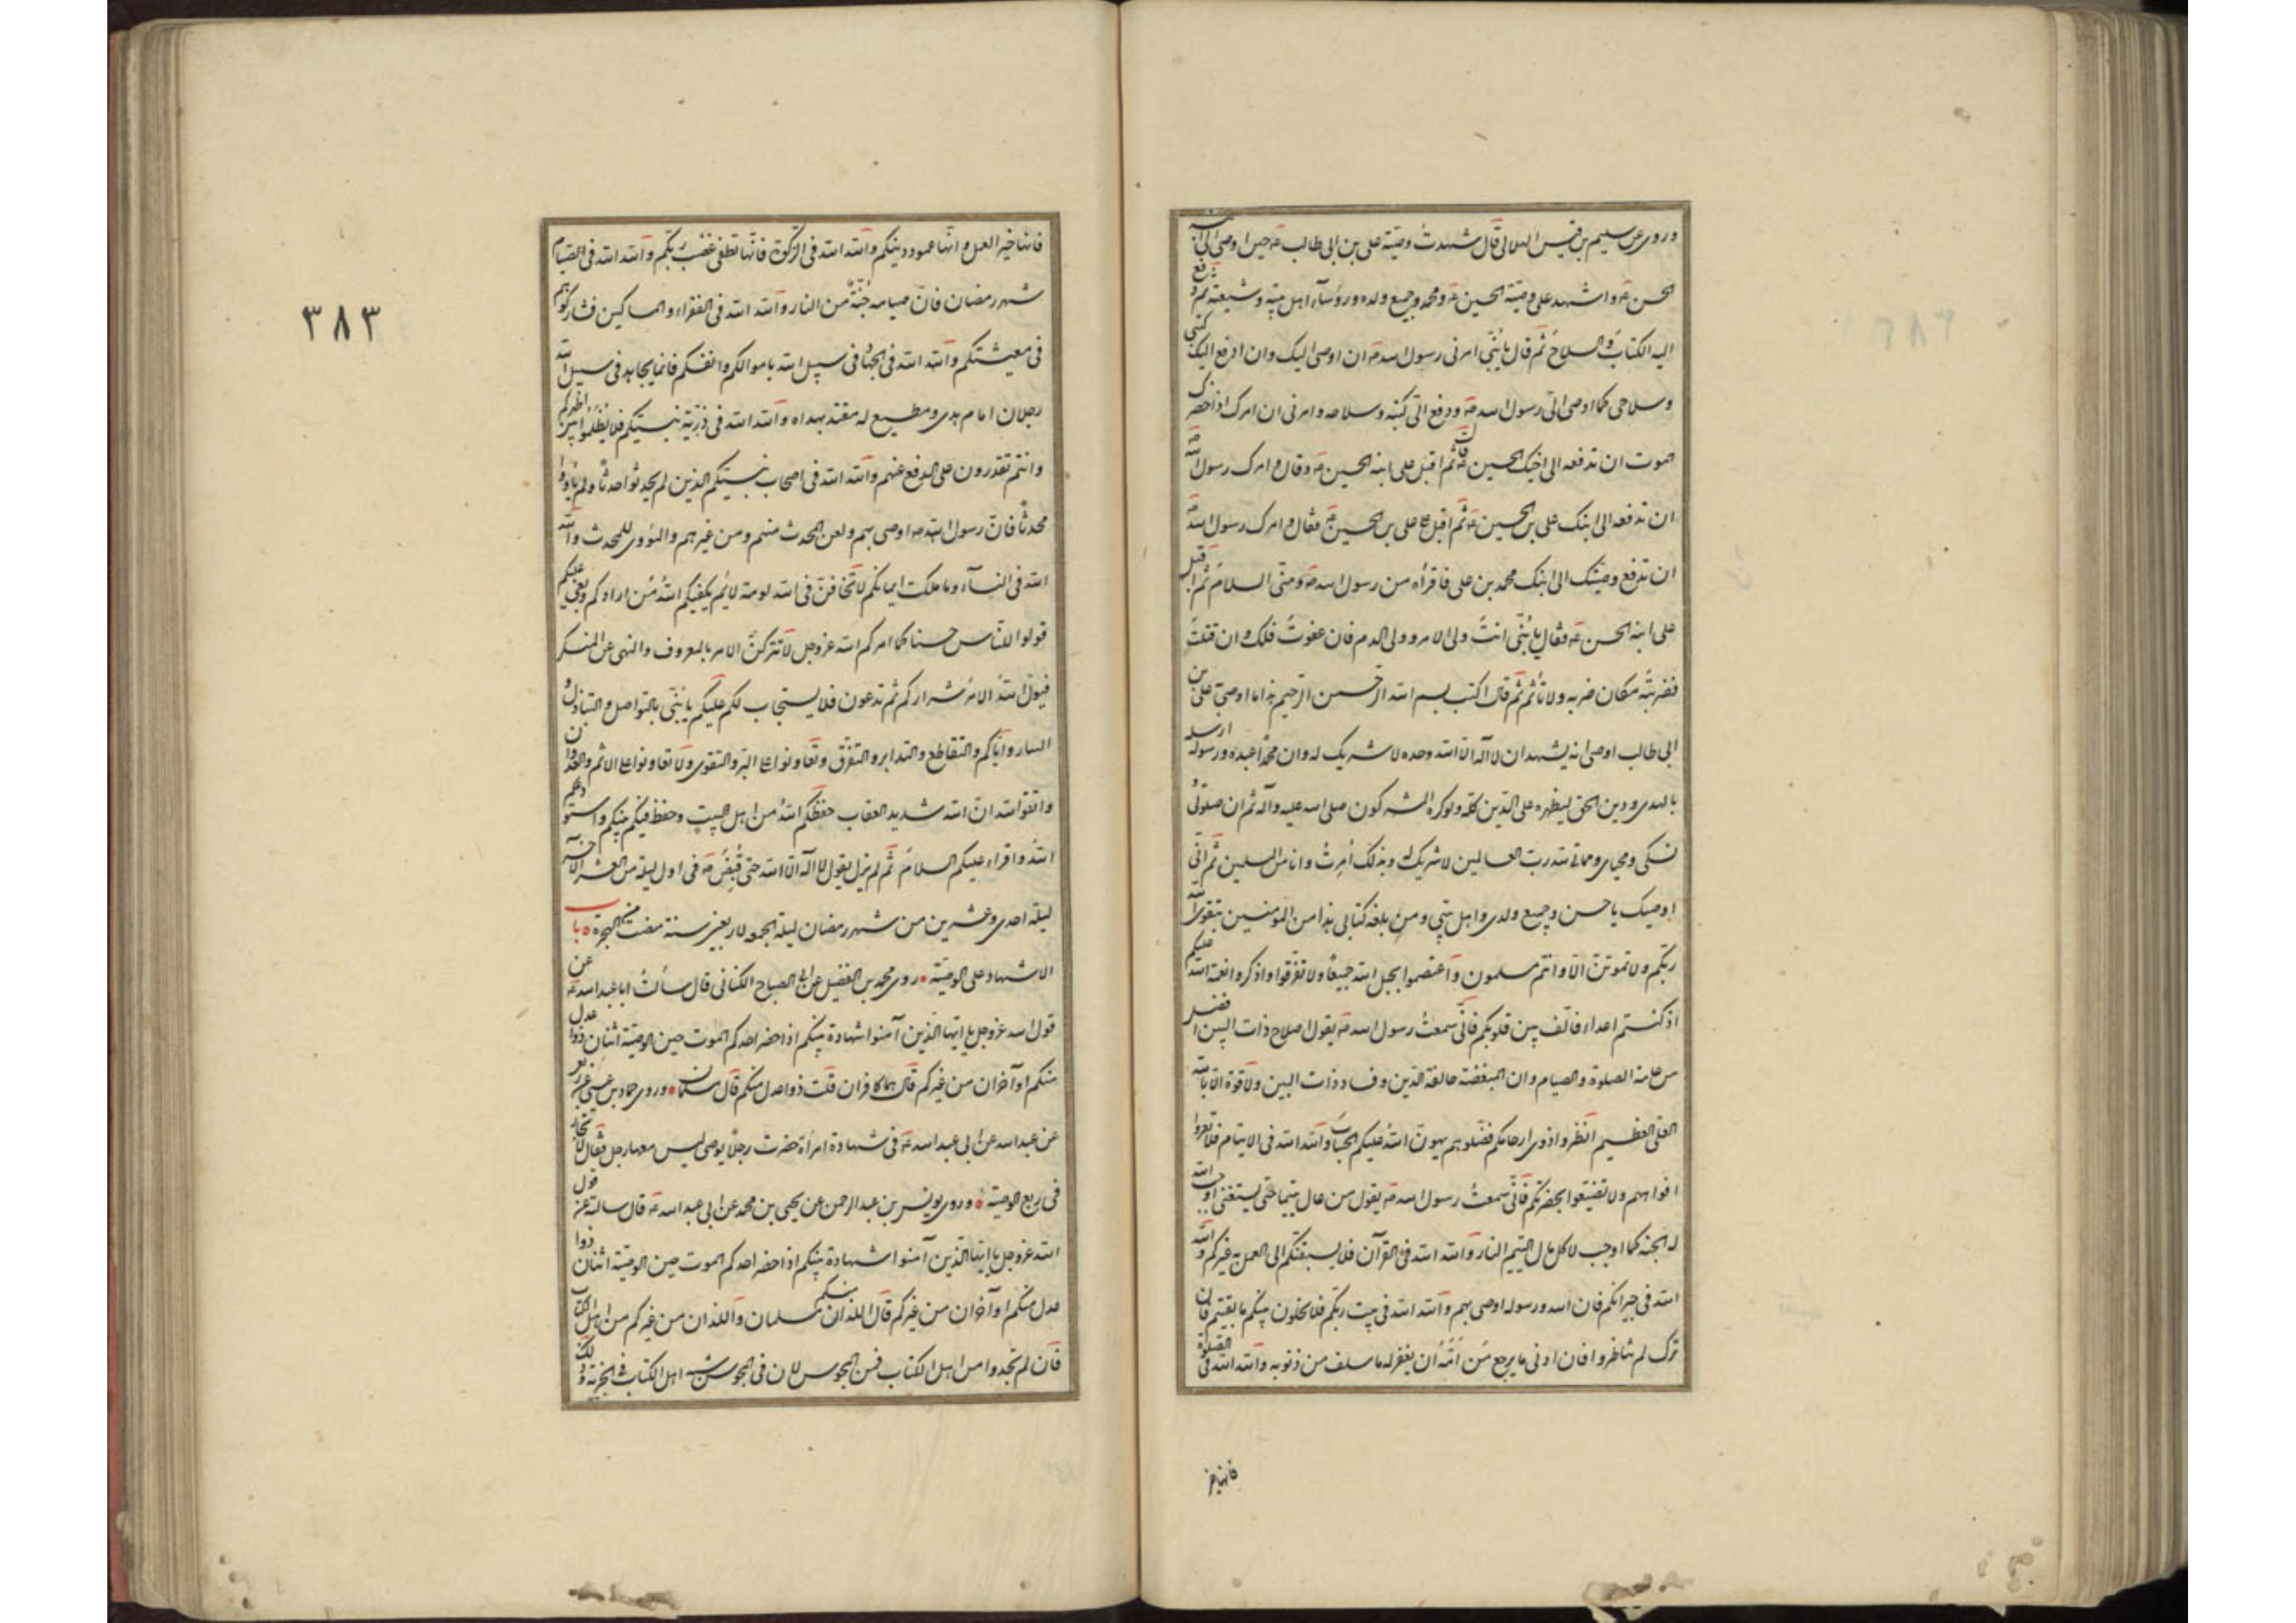 وروی عن سلیم بن قیس الهلالی قال شهدت وصیة علی بن ابی طالب ع حین اوصی الی ابنه
الحسن ع واشهد علی وصیته الحسین ع ومحمد وجمیع ولده ورؤساء اهل بیته وشیعته ثم دفع
الیه الکتاب والسلاح ثم قال یا بُنَیّ امرنی رسول الله ص ان اوصی الیک وان ادفع الیک کتبی
وسلاحی کما اوصی الیّ رسول الله ص ودفع الیّ کتبه وسلاحه وامرنی ان امرک اذا حضرک
الموت ان تدفعه الی اخیک الحسین قال ثم اقبل علی ابنه الحسین ع وقال وامرک رسول الله ص
ان تدفعه الی ابنک علی بن الحسین ع ثم اقبل علی علی بن الحسین ع فقال وامرک رسول الله ص
ان تدفع وصیتک الی ابنک محمد بن علی فاقرأه من رسول الله ص ومنّی السلام ثم اقبل
علی ابنه الحسن ع فقال یا بُنَیّ انت ولی الامر وولی الدم فان عفوت فلک وان قتلت
فضربة مکان ضربه ولا تأثم ثم قال اکتب بسم الله الرحمن الرحیم هذا ما اوصی علی بن
ابی طالب اوصی انه یشهد ان لا اله الا الله وحده لا شریک له وان محمدا عبده ورسوله ارسله
بالهدی ودین الحق لیظهره علی الدین کله ولو کره المشرکون صلی الله علیه وآله ثم ان صلوتی و
نسکی ومحیای ومماتی لله رب العالمین لا شریک له وبذلک اُمرت وانا من المسلمین ثم انّی
اوصیک یا حسن وجمیع ولدی واهل بیتی ومن بلغه کتابی هذا من المؤمنین بتقوی الله
ربکم ولا تموتنّ الا وانتم مسلمون واعتصموا بحبل الله جمیعًا ولا تفرّقوا واذکروا نعمة الله علیکم
اذ کنتم اعداء فالّف بین قلوبکم فانّی سمعت رسول الله ص یقول اصلاح ذات البین افضل
من عامة الصلوة والصیام وان المبغضة حالقة الدین وفساد ذات البین ولا قوة الا بالله
العلی العظیم انظروا ذوی ارحامکم فصلوهم یهون الله علیکم الحساب والله الله فی الایتام فلا تعروا
افواههم ولا تضیعوا بحضرتکم فانّی سمعت رسول الله ص یقول من عال یتیما حتی یستغنی اوجب الله
له الجنة کما اوجب لاکل مال الیتیم النار والله الله فی القرآن فلا یسبقنکم الی العمل به غیرکم والله
الله فی جیرانکم فان الله ورسوله اوصی بهم والله الله فی بیت ربکم فلا یخلون منکم ما بقیتم فان
ترک لم تناظروا فان ادنی ما یرجع من اَمَّهُ ان یغفر له ما سلف من ذنوبه والله الله فی الصلوة
فانها خیر
٣٨٣
فانها خیر العمل وانها عمود دینکم والله الله فی الزکوة فانّها تطفی غضب ربکم والله الله فی الصیام
شهر رمضان فانّ صیامه جُنّة من النار والله الله فی الفقراء والمساکین فشارکوهم
فی معیشتکم والله الله فی الجهاد فی سبیل الله باموالکم وانفسکم فانما یجاهد فی سبیل الله
رجلان امام هدی ومطیع له مقتد بهداه والله الله فی ذریّة نبیکم فلا یُظلَمُوا بین اظهرکم
وانتم تقدرون علی الدفع عنهم والله الله فی اصحاب نبیکم الذین لم یحدثوا حدثًا ولم یأووا
محدثًا فانّ رسول الله ص اوصی بهم ولعن المحدث منهم ومن غیرهم والمؤوی للمحدث والله
الله فی النساء وما ملکت ایمانکم لا تخافنّ فی الله لومة لائم یکفیکم اللهُ من ارادکم وبغی علیکم
قولوا للناس حسنا کما امرکم الله عزوجل لا تترکنّ الامر بالمعروف والنهی عن المنکر
فیولّی اللهُ الامر شرارکم ثم تدعون فلا یستجاب لکم علیکم یا بُنَیّ بالتواصل والتباذل و
التبار وایّاکم والتقاطع والتدابر والتفرّق وتعاونوا علی البرّ والتقوی ولا تعاونوا علی الاثم والعدوان
واتقوا الله انّ الله شدید العقاب حفظکم اللهُ من اهل بیت وحفظ فیکم نبیکم واستودعکم
اللهَ واقراء علیکم السلام ثم لم یزل یقول لا اله الا الله حتی قُبِضَ ع فی اول لیلة من العشر الآخر
لیلة احدی وعشرین من شهر رمضان لیلة الجمعه لاربعین سنة مضت من الهجرة ٥ باب
الاشهاد علی الوصیّة ٠ روی محمد بن الفضیل عن ابی الصباح الکنانی قال سألت ابا عبدالله ع عن
قول الله عزوجل یا ایها الذین آمنوا شهادة بینکم اذا حضر احدکم الموت حین الوصیّة اثنان ذوا عدل
منکم او آخران من غیرکم قال هما کافران قلت ذوا عدل منکم قال مسلمان ٠ وروی حماد بن عیسی عن ربعی
عن عبدالله عن ابی عبدالله ع فی شهادة امرأة حضرت رجلًا یوصی لیس معها رجل فقال تجاز
فی ربع الوصیّة ٥ وروی یونس بن عبد الرحمن عن یحیی بن محمد عن ابی عبدالله ع قال سالته عن قول
الله عزوجل یا ایها الذین آمنوا شهادة بینکم اذا حضر احدکم الموت حین الوصیّة اثنان ذوا
عدل منکم او آخران من غیرکم قال اللذان منکم مسلمان واللذان من غیرکم من اهل الکتاب
فان لم تجدوا من اهل الکتاب فمن المجوس لان فی المجوس سنة اهل الکتاب فی الجزیة وذلک